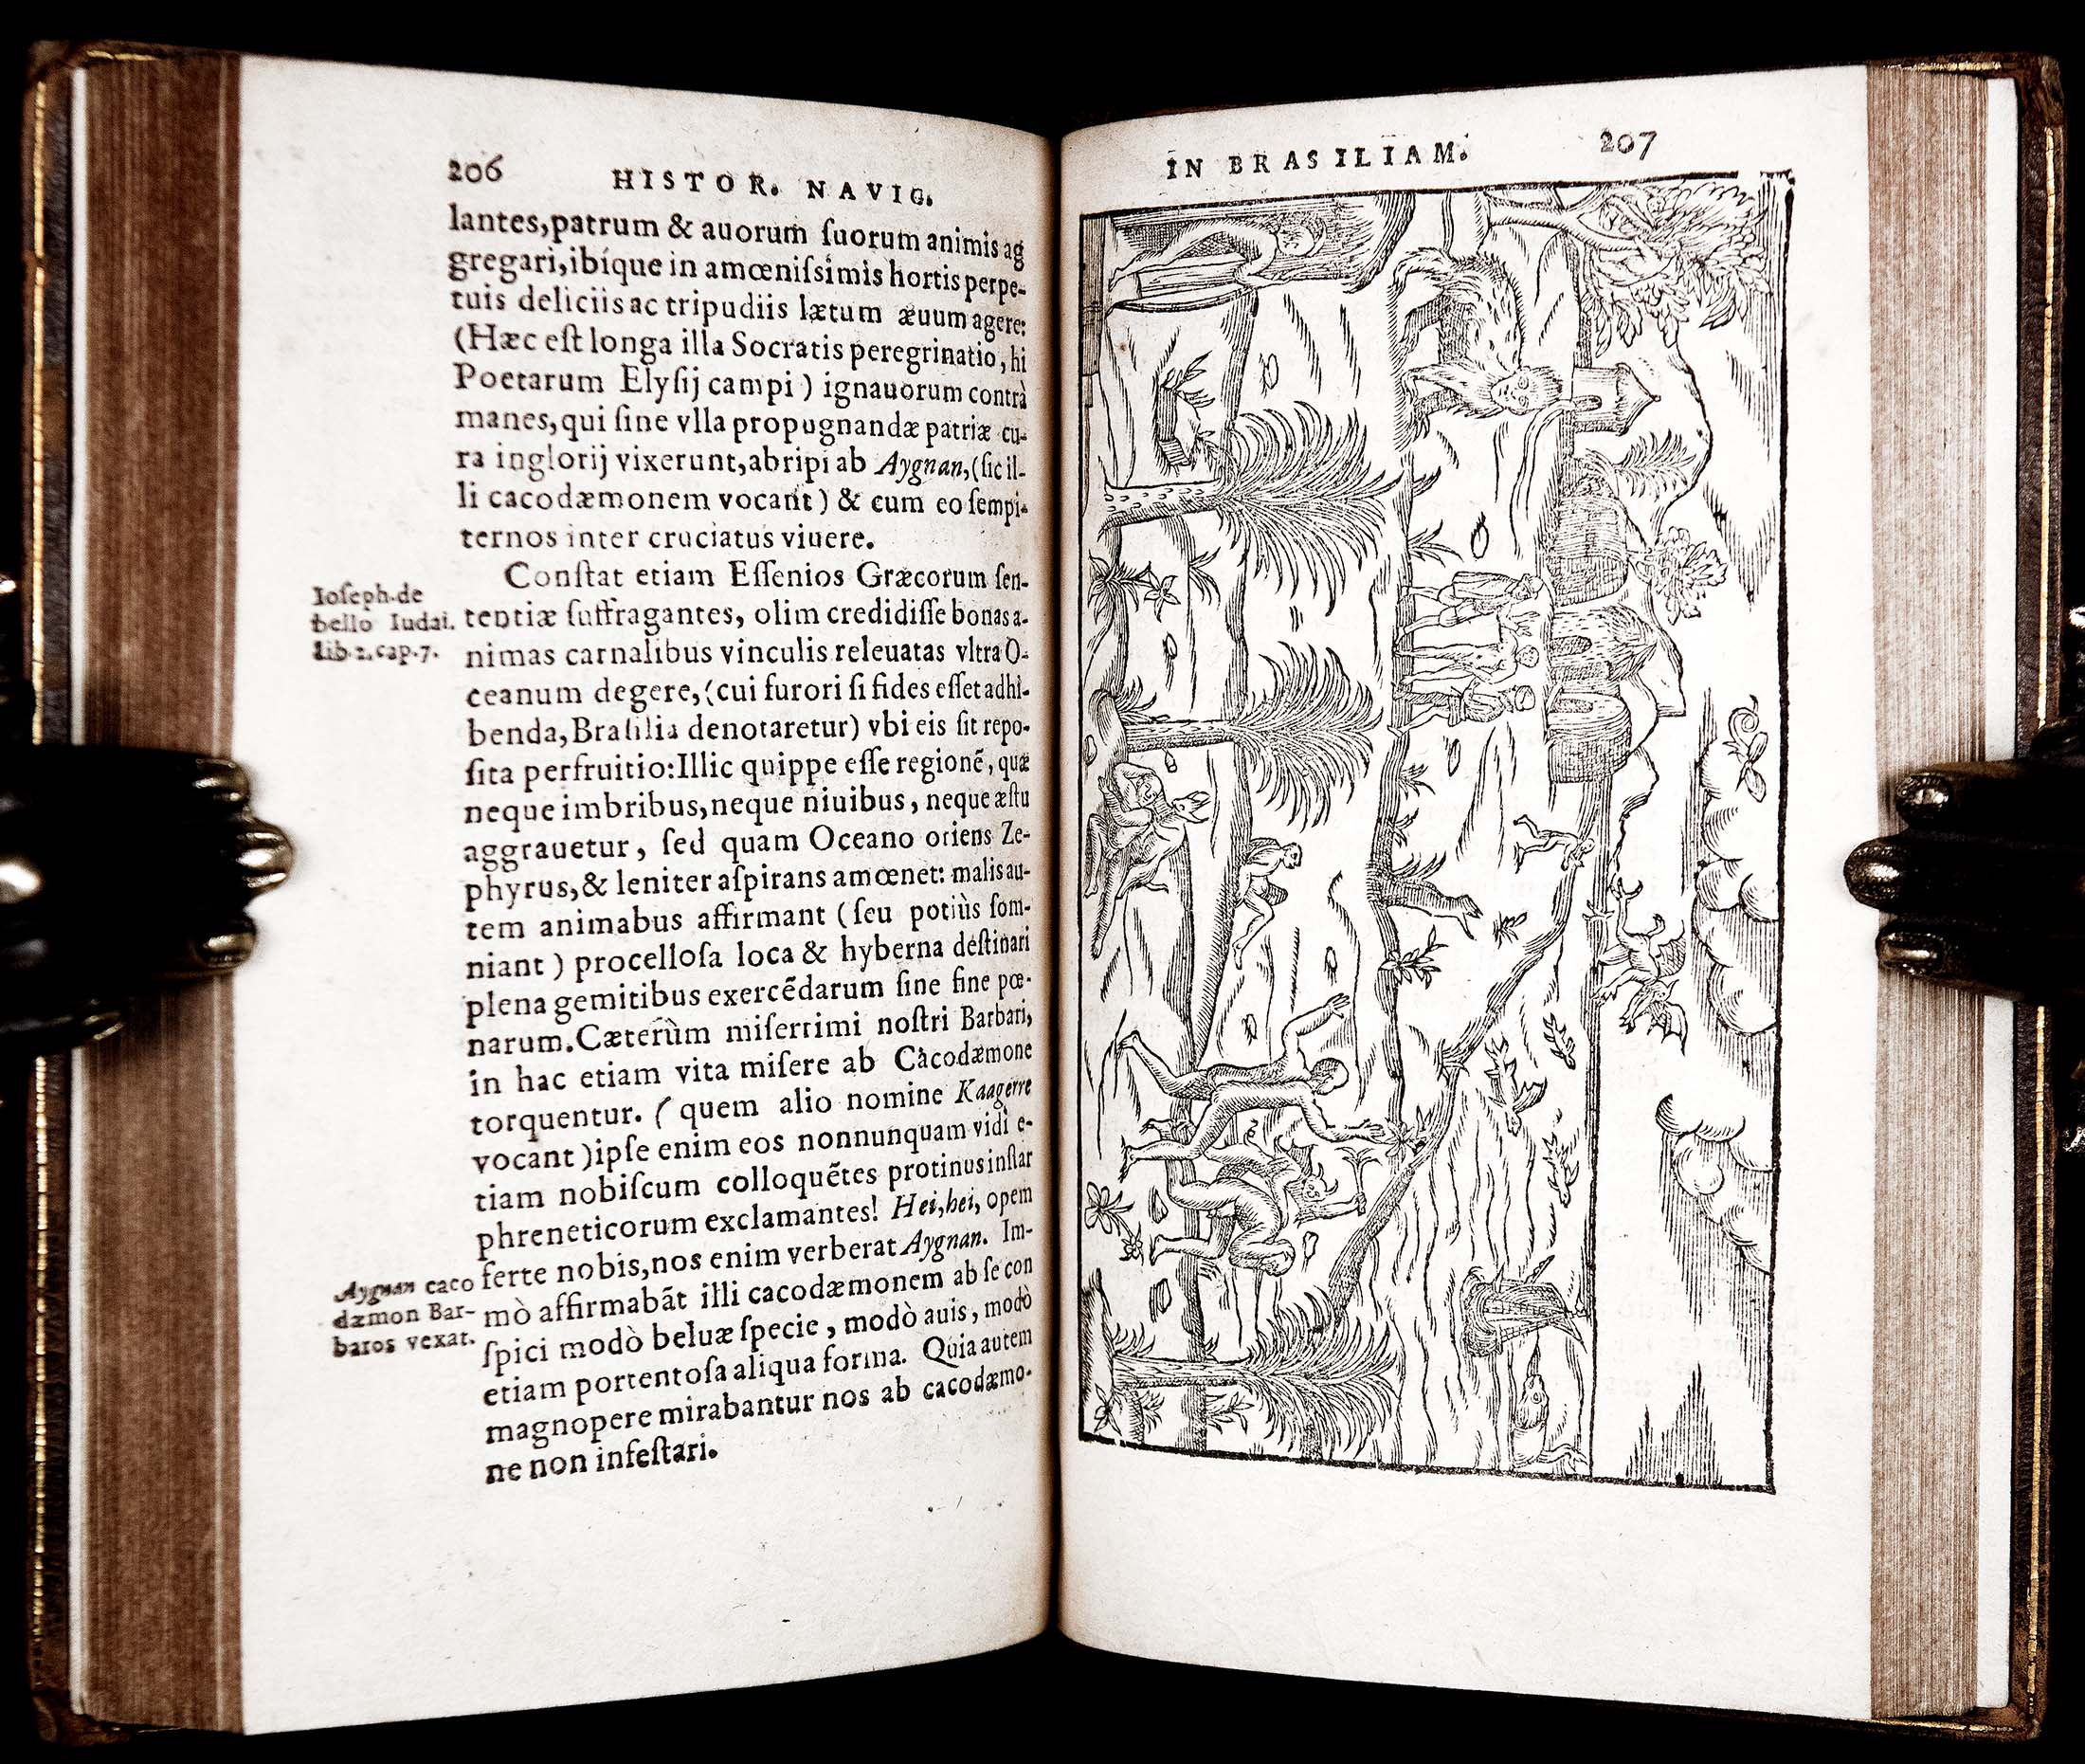 206 HISTOR. NAVIG.
lantes,patrum & auorum ſuorum animis ag
gregari,ibíque in amœniſsimis hortis perpe-
tuis deliciis ac tripudiis lætum æuum agere:
(Hæc eſt longa illa Socratis peregrinatio, hi
Poetarum Elyſij campi ) ignauorum contrà
manes,qui ſine vlla propugnandæ patriæ cu-
ra inglorij vixerunt,abripi ab Aygnan,(ſic il-
li cacodæmonem vocant ) & cum eo ſempi-
ternos inter cruciatus viuere.
Conſtat etiam Eſſenios Græcorum ſen-
Ioſeph.de
bello Iudai.
lib.2.cap.7.
tentiæ ſuffragantes, olim credidiſſe bonas a-
nimas carnalibus vinculis releuatas vltra O-
ceanum degere, (cui furori ſi fides eſſet adhi-
benda,Braſilia denotaretur) vbi eis ſit repo-
ſita perfruitio:Illic quippe eſſe regionẽ, quæ
neque imbribus,neque niuibus, neque æſtu
aggrauetur, ſed quam Oceano oriens Ze-
phyrus,& leniter aſpirans amœnet: malis au-
tem animabus affirmant (ſeu potiùs ſom-
niant ) procelloſa loca & hyberna deſtinari
plena gemitibus exercẽdarum ſine fine pœ-
narum.Cæterùm miſerrimi noſtri Barbari,
in hac etiam vita miſere ab Cacodæmone
torquentur. ( quem alio nomine Kaagerre
vocant )ipſe enim eos nonnunquam vidi e-
tiam nobiſcum colloquẽtes protinus inſtar
phreneticorum exclamantes! Hei,hei, opem
ferte nobis,nos enim verberat Aygnan. Im-
Aygnan caco
dæmon Bar-
baros vexat.
mò affirmabãt illi cacodæmonem ab ſe con
ſpici modò beluæ ſpecie, modò auis, modò
etiam portentoſa aliqua forma. Quia autem
magnopere mirabantur nos ab cacodæmo-
ne non infeſtari.
IN BRASILIAM. 207